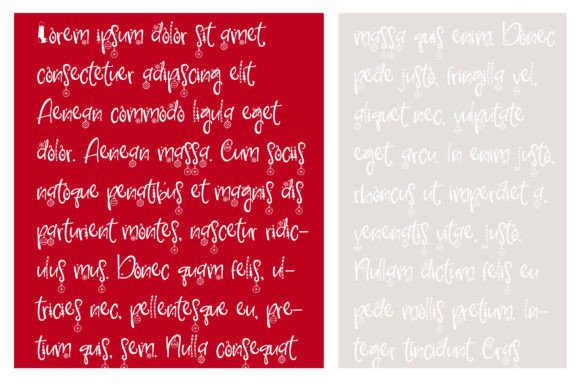 Lorem ipsum dolor sit amet
consectetuer adipiscing elit
Aenean commodo ligula eget
dolor. Aenean massa. Cum sociis
natoque penatibus et magnis dis
parturient montes, nascetur ridic-
ulus mus. Donec quam felis, ul-
tricies nec, pellentesque eu, pre-
tium quis, sem. Nulla consequat
massa quis enim. Donec
pede justo, fringilla vel,
aliquet nec, vulputate
eget, arcu. In enim justo,
rhoncus ut, imperdiet a,
venenatis vitae, justo.
Nullam dictum felis eu
pede mollis pretium. In-
teger tincidunt. Cras